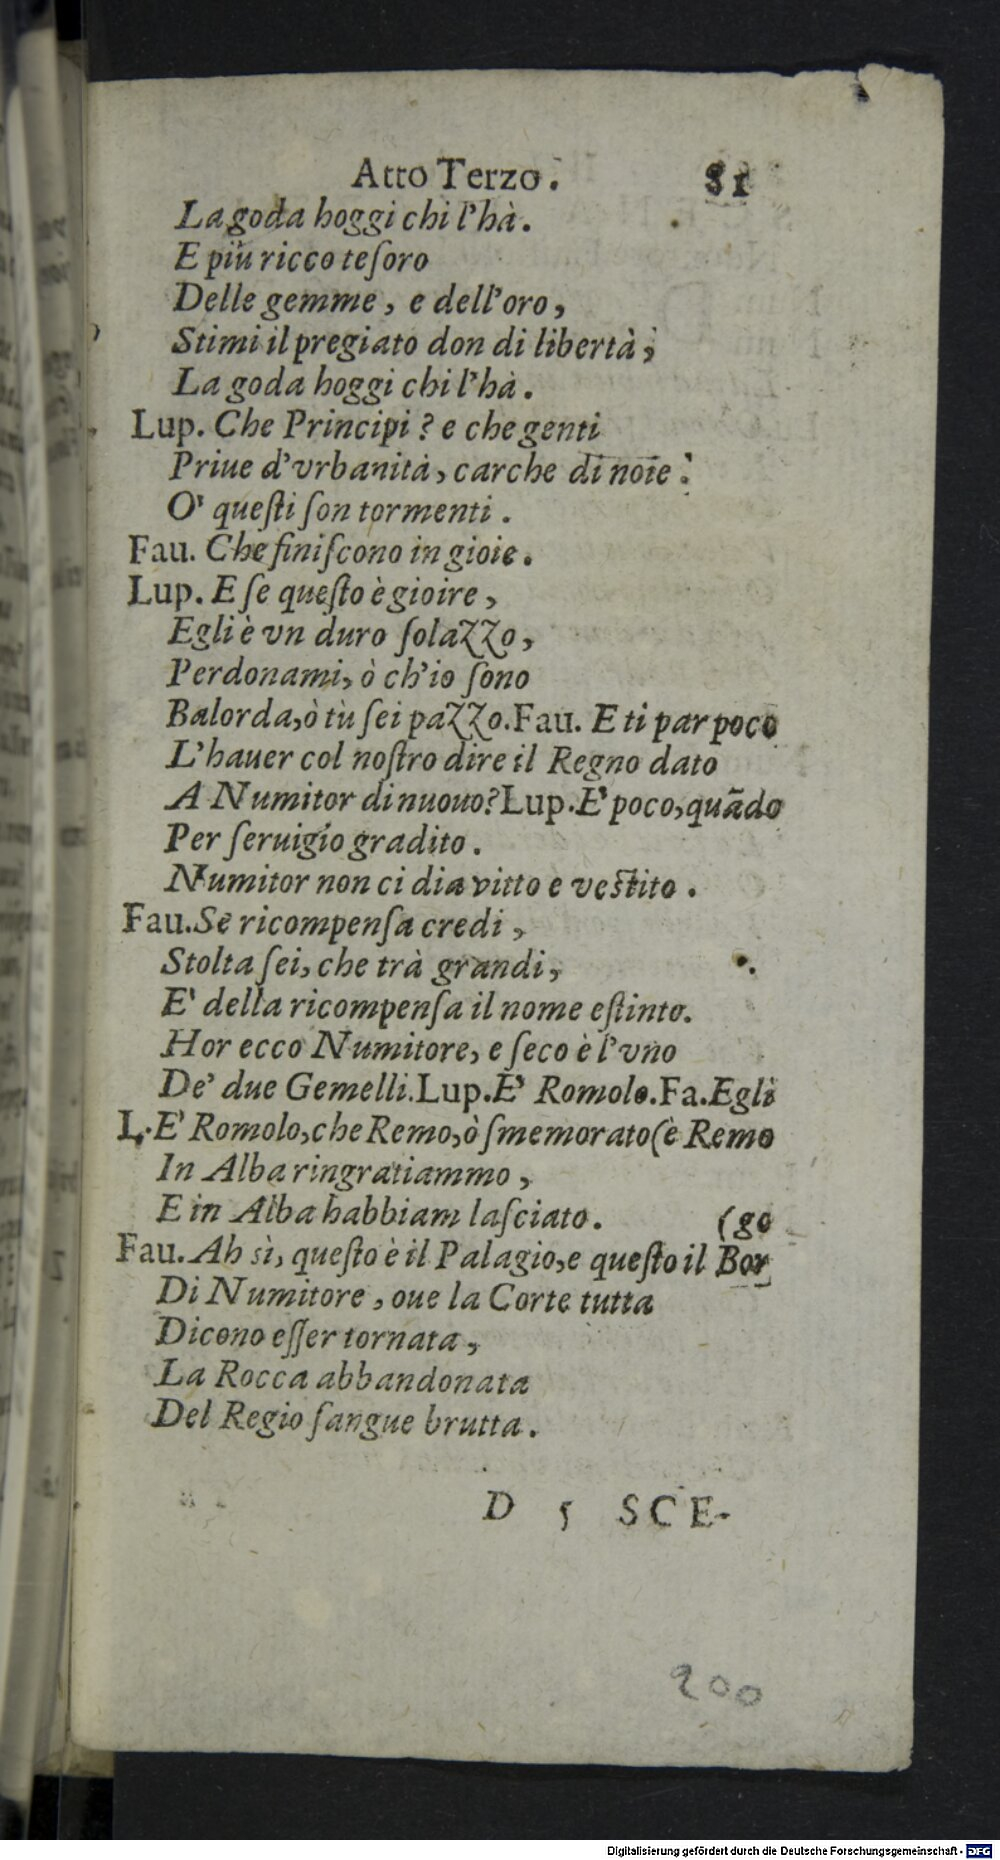 Atto Terzo. 81
La goda hoggi chi l'hà.
E più ricco teſoro
Delle gemme, e dell'oro,
Stimi il pregiato don di libertà;
La goda hoggi chi l'hà.
Lup. Che Principi? e che genti
Priue d'vrbanità, carche di noie:
O' queſti ſon tormenti.
Fau. Che finiſcono in gioie.
Lup. E ſe queſto è gioire,
Egli è vn duro ſolazzo,
Perdonami, ò ch'io ſono
Balorda, ò tù ſei pazzo. Fau. E ti par poco
L'hauer col noſtro dire il Regno dato
A Numitor di nuouo? Lup. E' poco, quãdo
Per ſeruigio gradito.
Numitor non ci dia vitto e veſtito.
Fau. Se ricompenſa credi,
Stolta ſei, che trà grandi,
E' della ricompenſa il nome eſtinto.
Hor ecco Numitore, e ſeco è l'vno
De' due Gemelli. Lup. E' Romolo. Fa. Egli
L. E' Romolo, che Remo, ò ſmemorato (è Remo
In Alba ringratiammo,
E in Alba habbiam laſciato. (go
Fau. Ah sì, queſto è il Palagio, e queſto il Bor
Di Numitore, oue la Corte tutta
Dicono eſſer tornata,
La Rocca abbandonata
Del Regio ſangue brutta.
D 5 SCE-
200
Digitalisierung gefördert durch die Deutsche Forschungsgemeinschaft - DFG